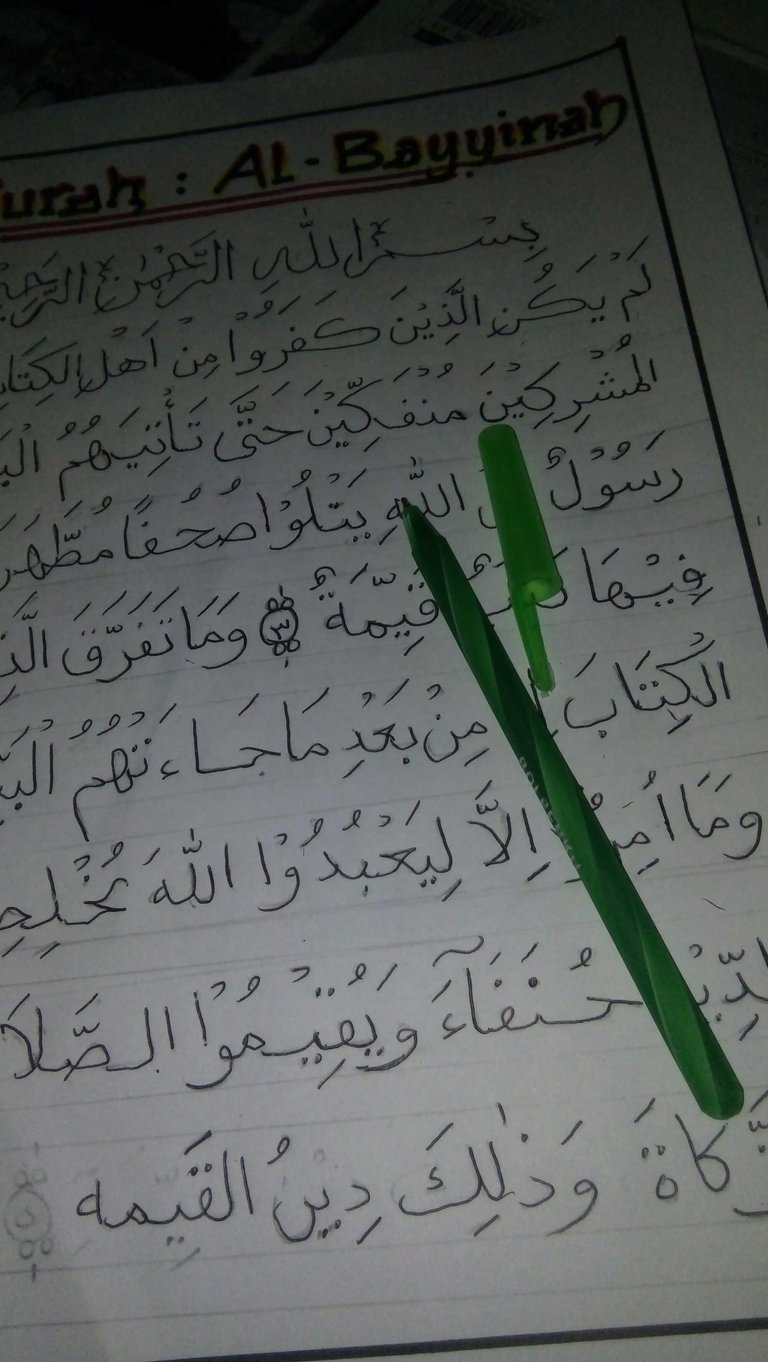 Surah : AL-Bayyinah
بِسْمِ اللّٰهِ الرَّحْمٰنِ الرَّحِيْمِ
لَمْ يَكُنِ الَّذِيْنَ كَفَرُوْا مِنْ اَهْلِ الْكِتَابِ
الْمُشْرِكِيْنَ مُنْفَكِّيْنَ حَتَّى تَأْتِيَهُمُ
رَسُوْلٌ اللّٰهِ يَتْلُوْا صُحُفًا مُطَّهَرَ
فِيْهَا قَيِّمَةٌ ٣ وَمَا تَفَرَّقَ
الْكِتَابَ مِنْ بَعْدِ مَا جَاءَتْهُمُ
وَمَا اُمِرُ اِلَّا لِيَعْبُدُوْا اللّٰهَ
حُنَفَآءَ وَيُقِيْمُوْا الصَّلَا
وَذٰلِكَ دِيْنُ الْقَيِّمه